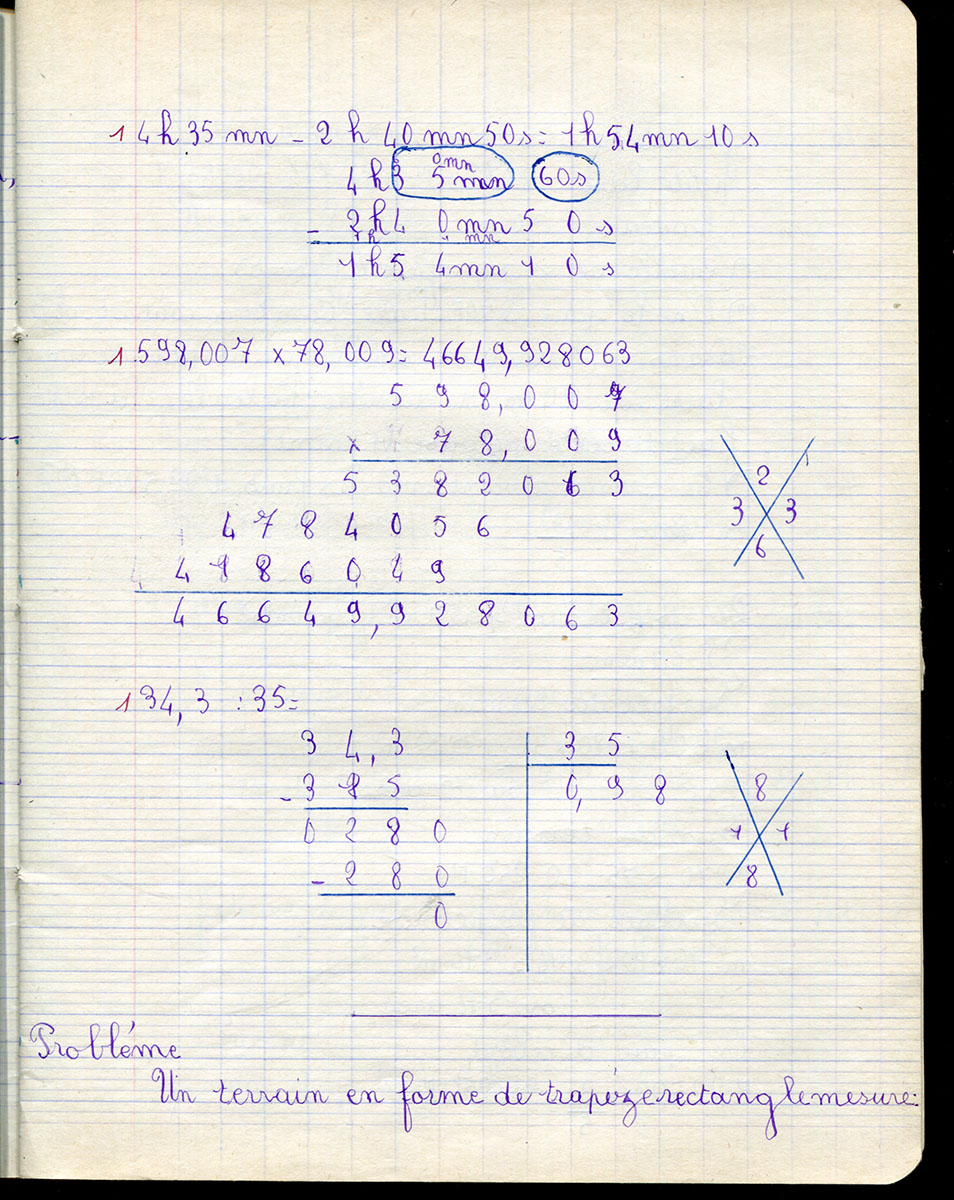 1 4 h 35 mn - 2 h 40 mn 50 s = 1 h 54 mn 10 s
0 mn
4 h 3 5 mn 60 s
- 2 h 4 0 mn 5 0 s
1 h 1 mn
1 h 5 4 mn 1 0 s
1 598,007 x 78,009 = 46649,928063
5 9 8, 0 0 7
x 7 8, 0 0 9
5 3 8 2 0 6 3
4 7 8 4 0 5 6
4 1 8 6 0 4 9
4 6 6 4 9, 9 2 8 0 6 3
2
3 3
6
1 34,3 : 35 =
3 4, 3 3 5
- 3 1 5 0, 9 8
0 2 8 0
- 2 8 0
0
8
1 1
8
Probléme
Un terrain en forme de trapéze rectangle mesure :